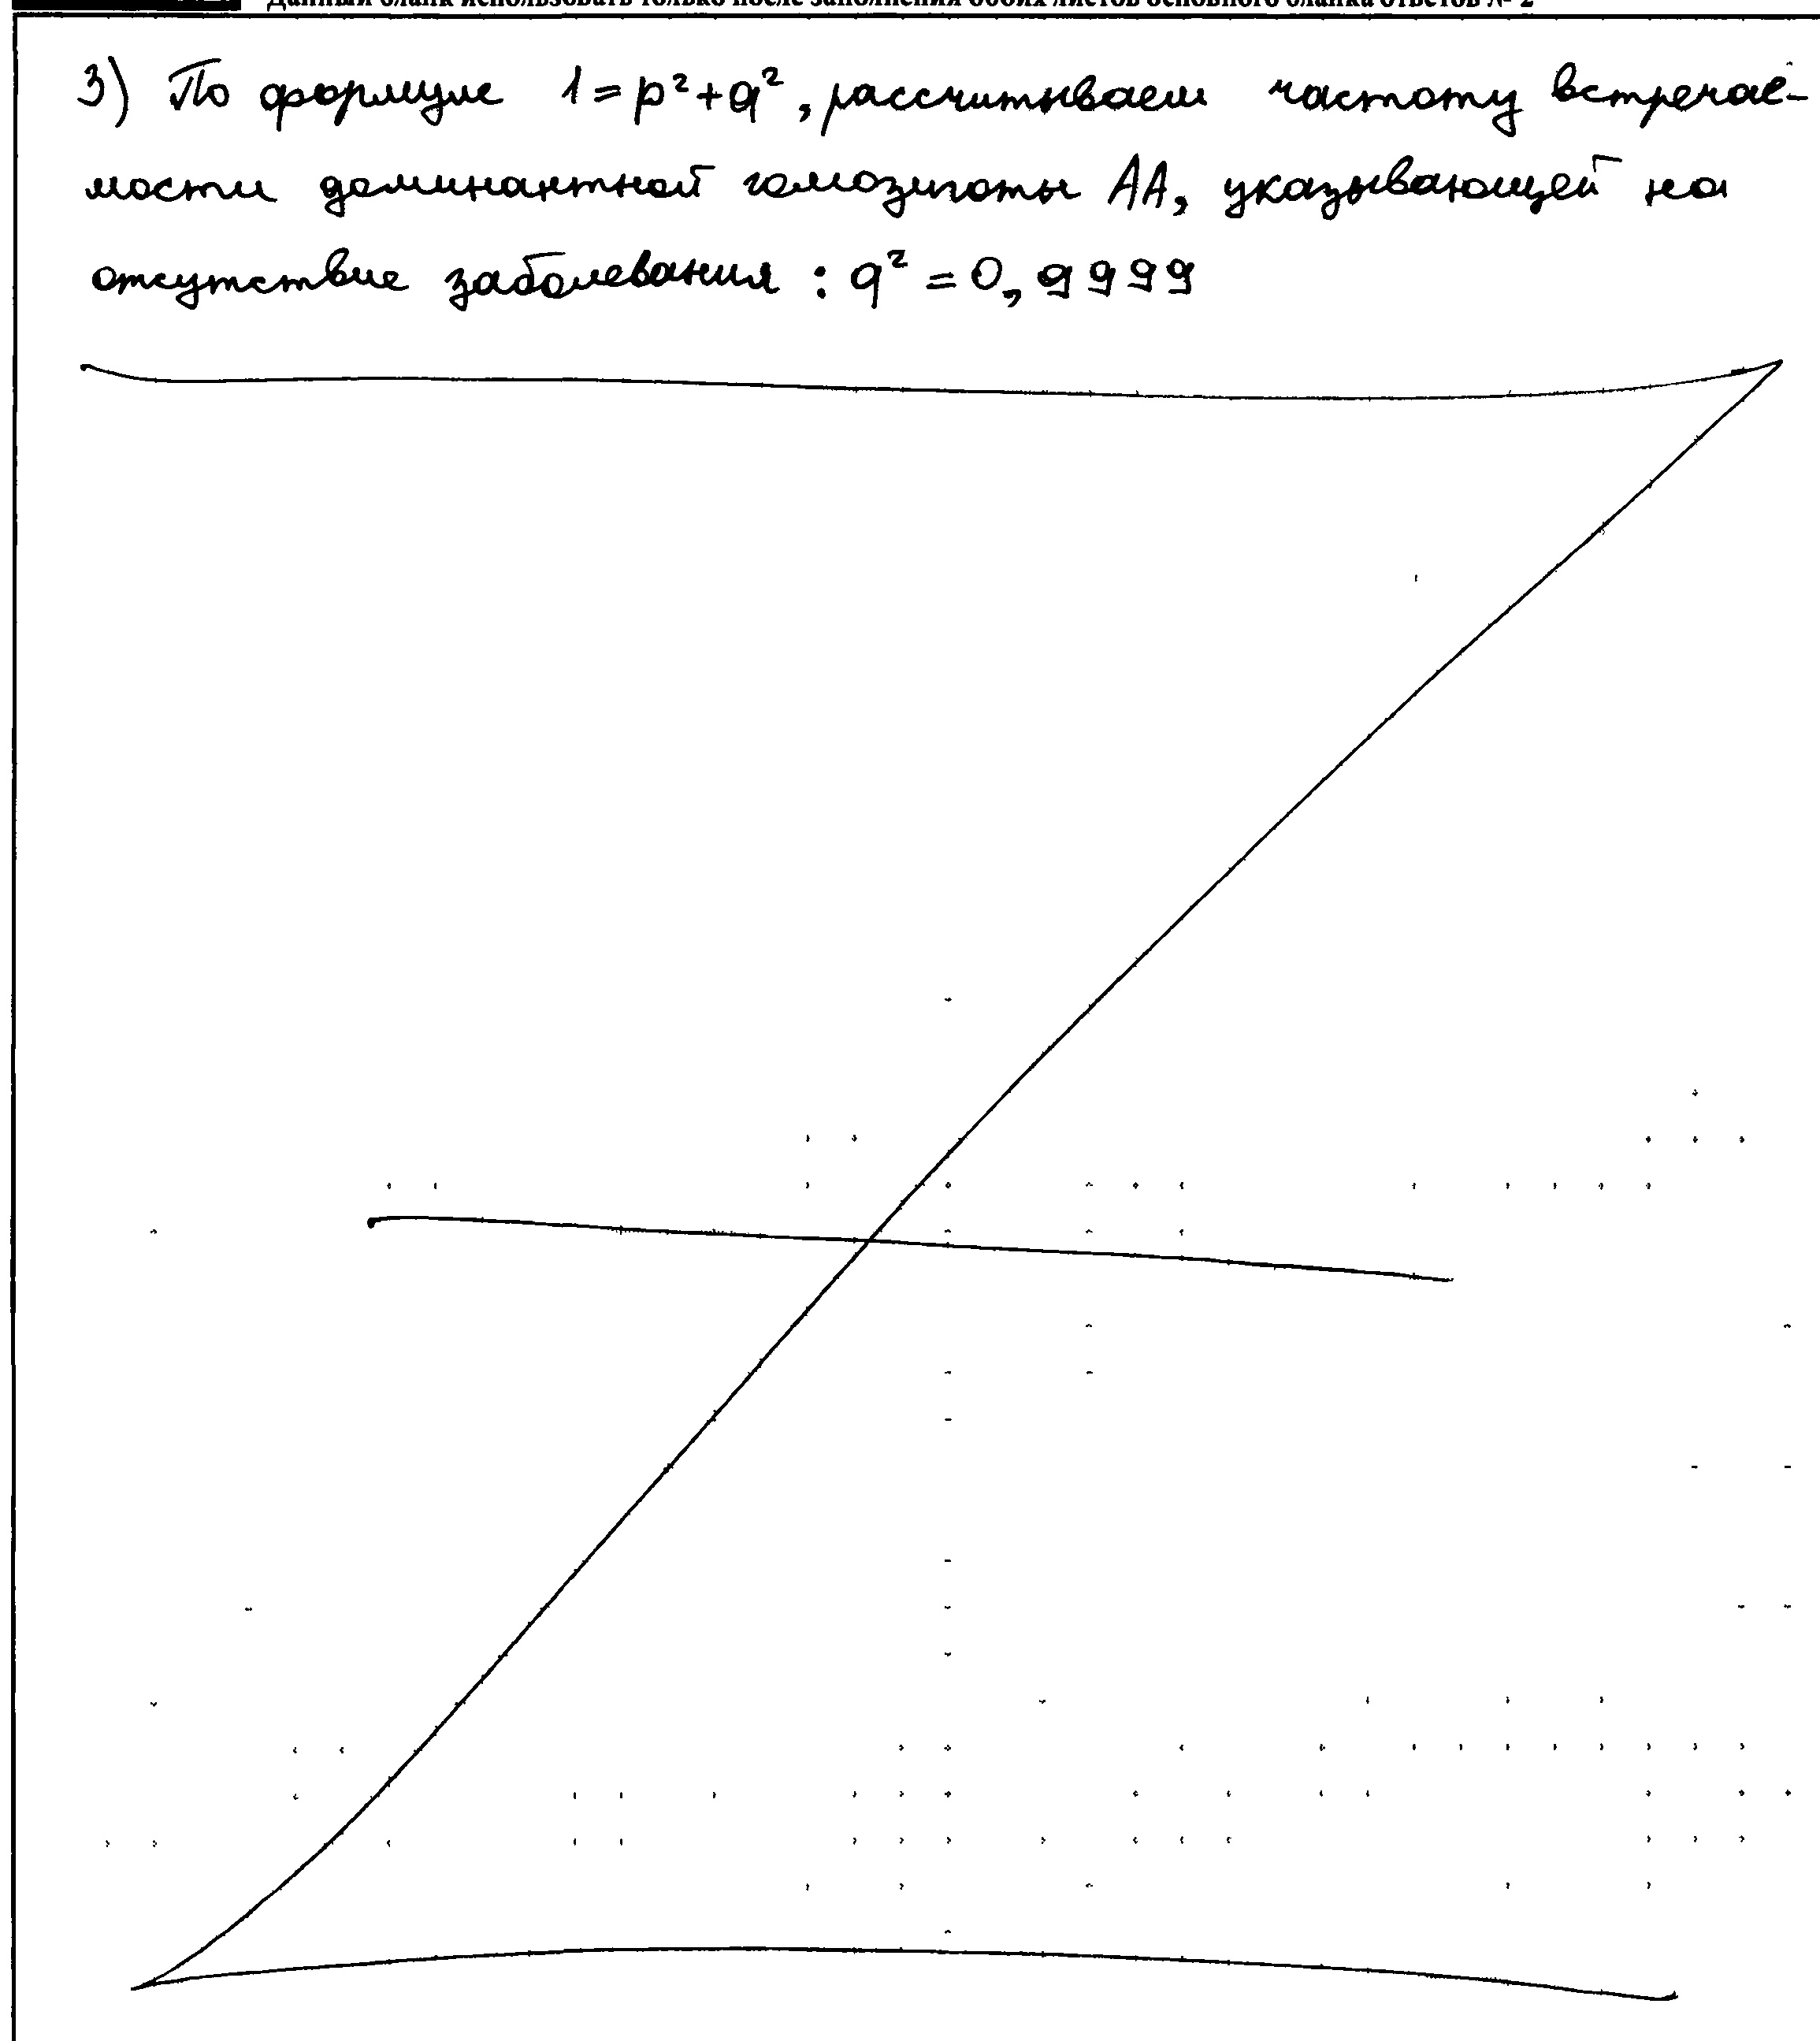 Данный бланк использовать только после заполнения обоих листов основного бланка ответов № 2
3) По формуле 1 = p² + q², рассчитываем частоту встречае-
мости доминантной гомозиготы АА, указывающей на
отсутствие заболевания : q² = 0,9999